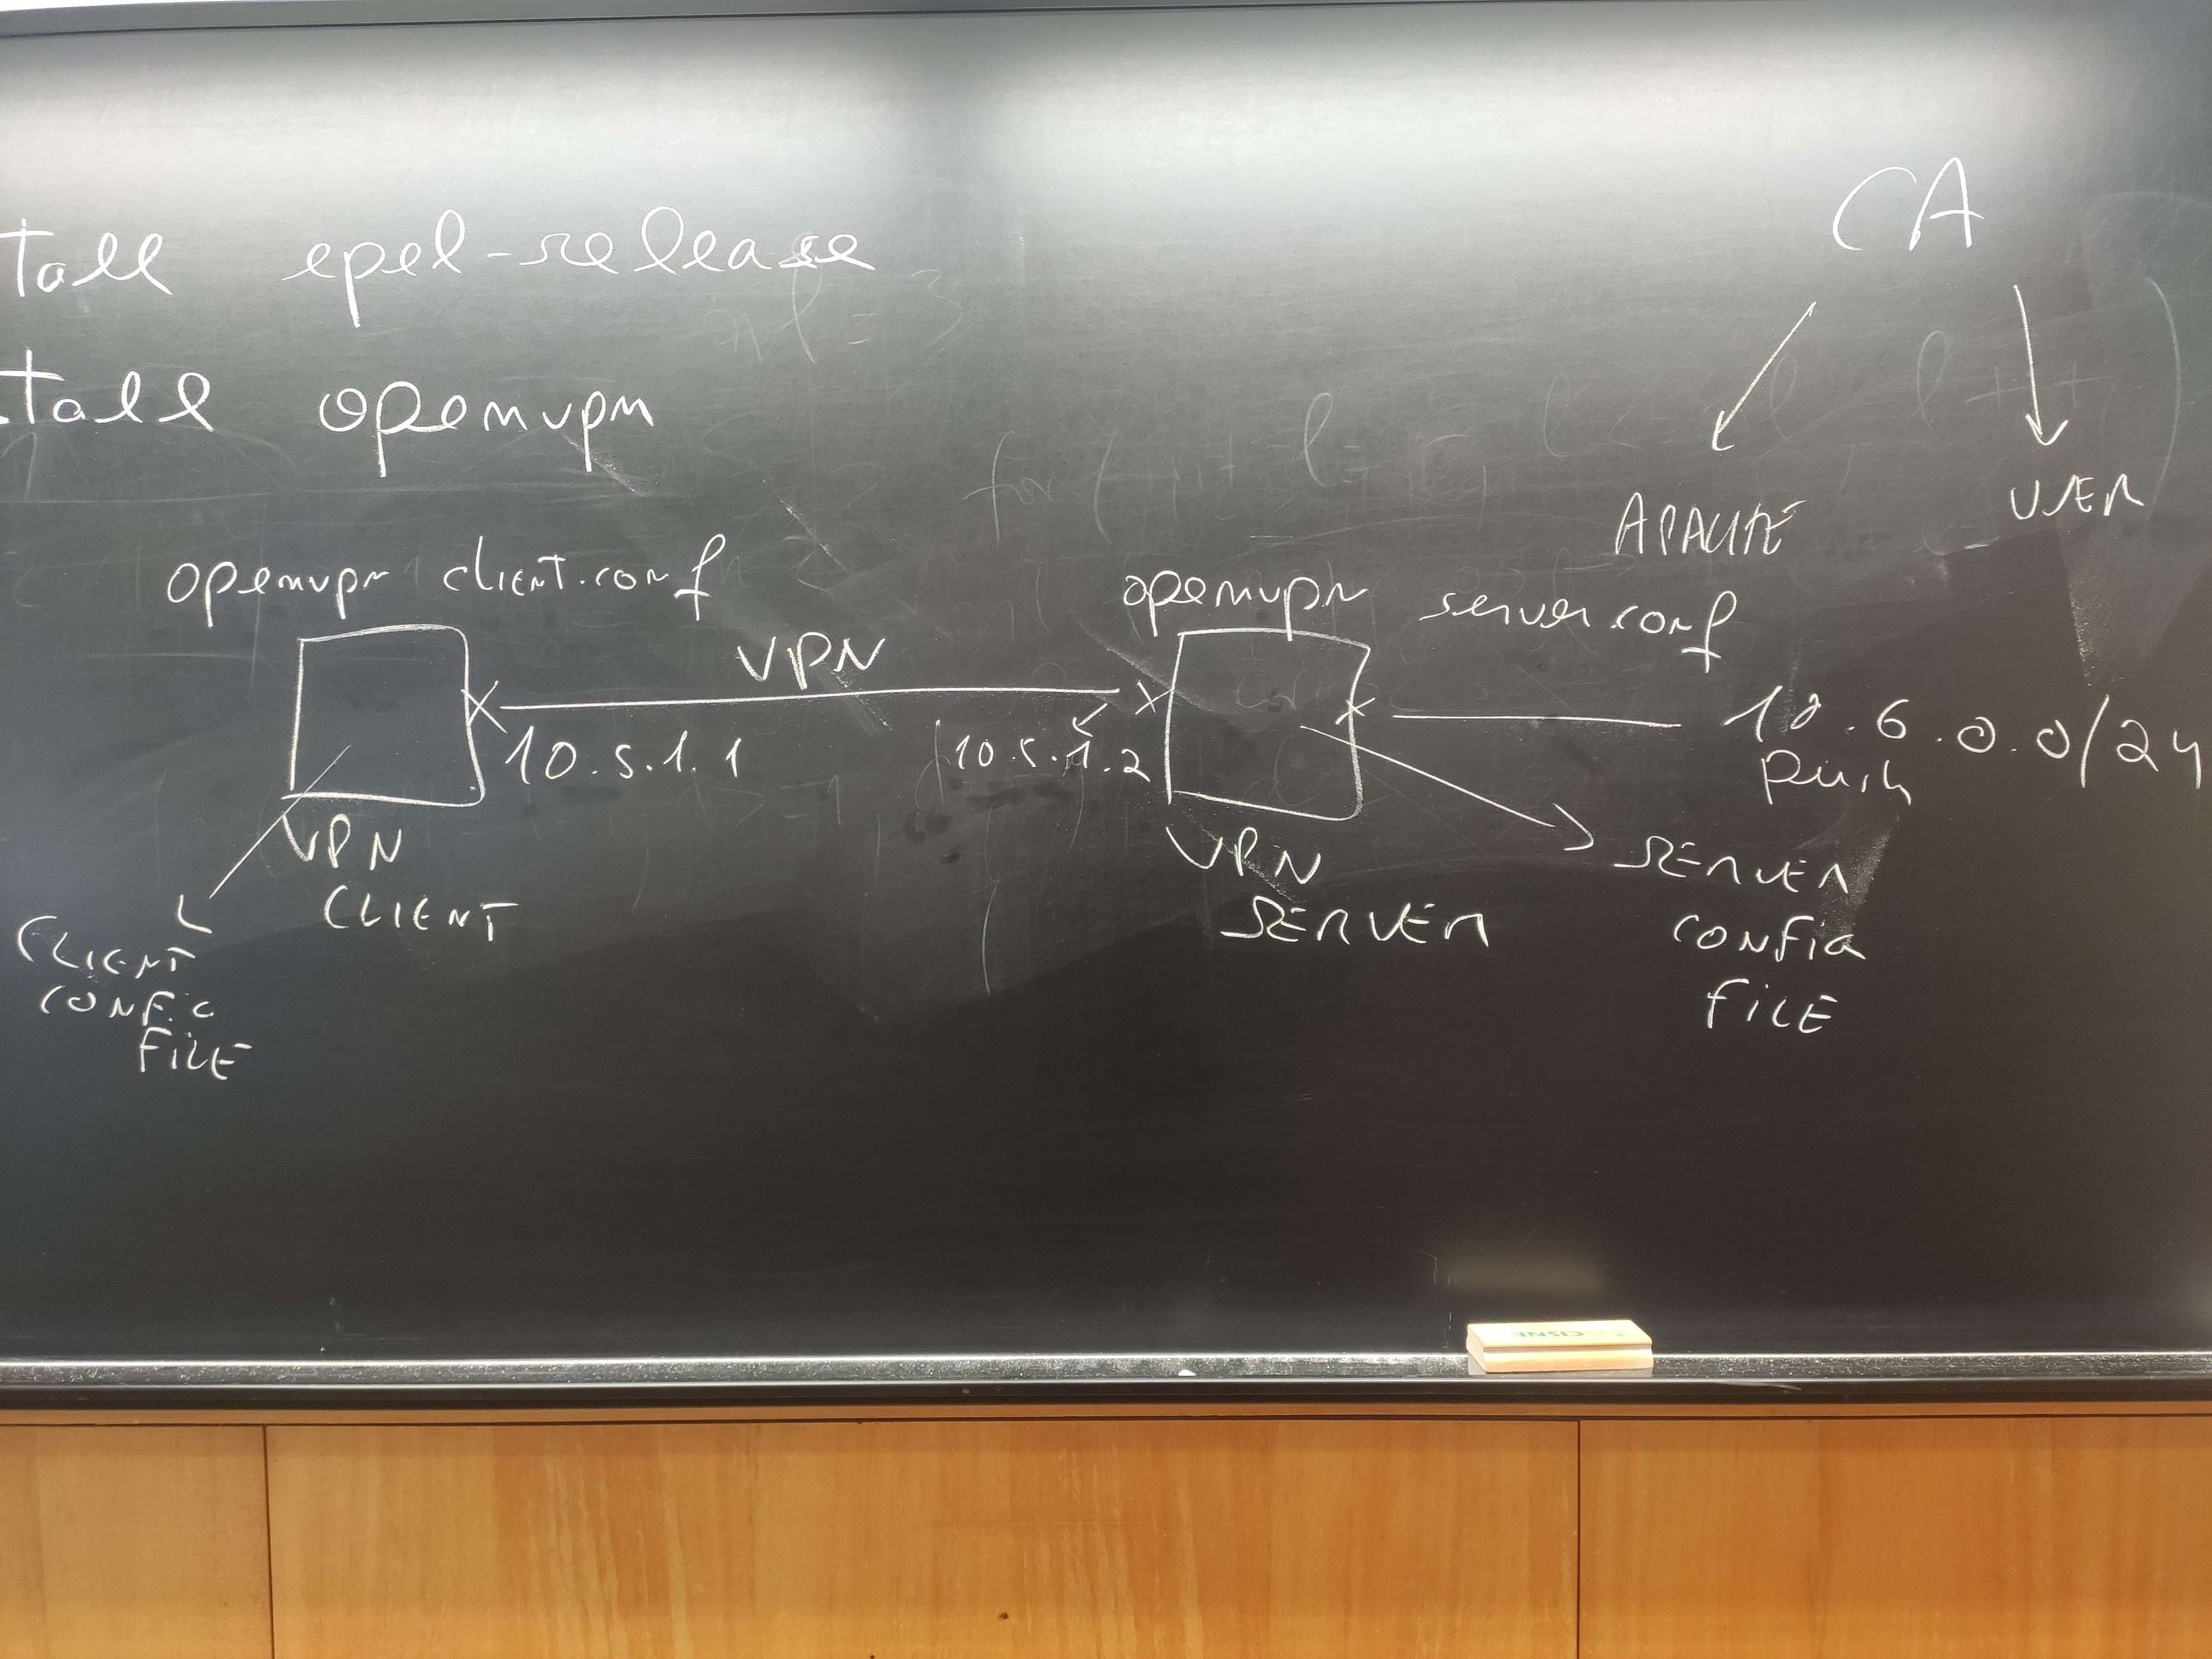 tall epel-release
stall openvpn
CA
APACHE
USER
openvpn client.conf
openvpn server.conf
VPN
10.5.1.1
10.5.1.2
10.6.0.0/24
push
VPN
CLIENT
VPN
SERVER
CLIENT
CONFIG
FILE
SERVER
CONFIG
FILE
CISNE